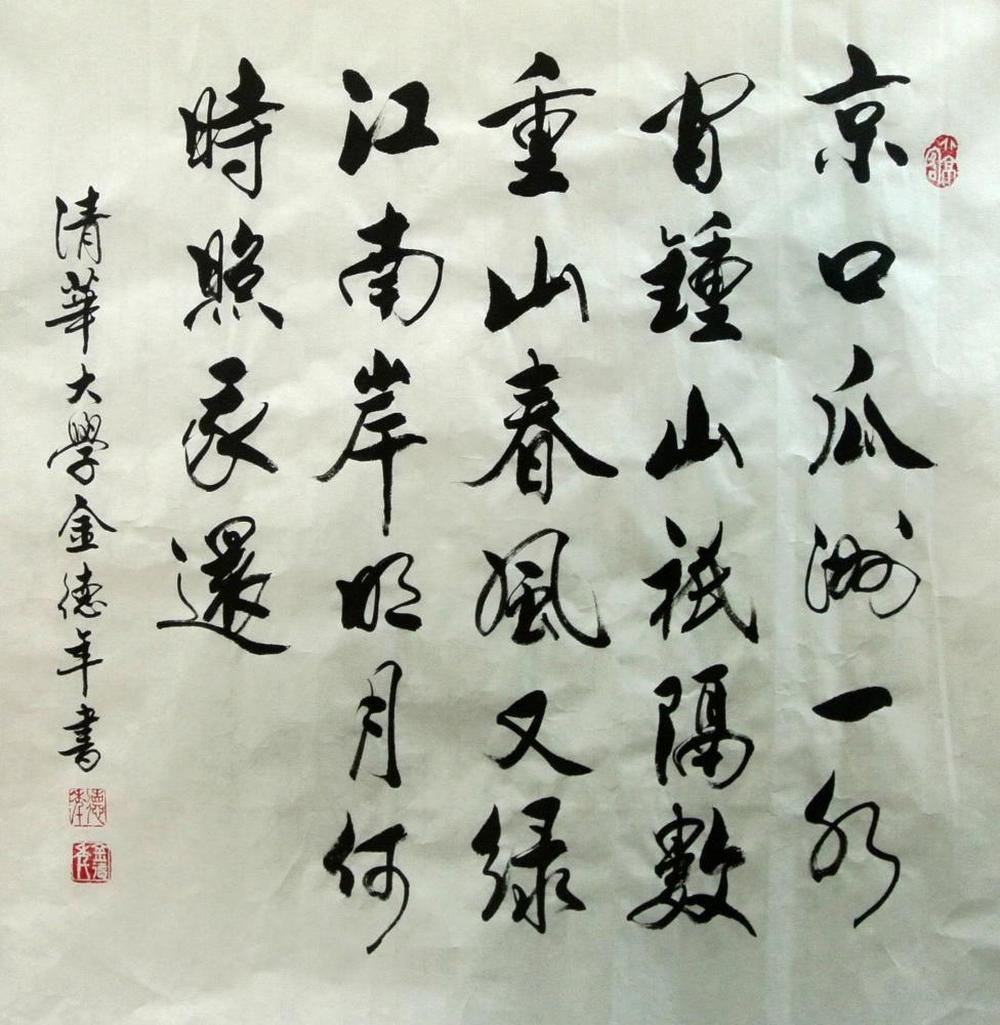 京口瓜洲一水
間鍾山祇隔數
重山春風又緑
江南岸明月何
時照我還
清華大學金德年書